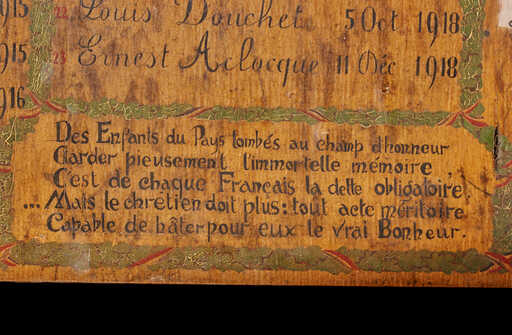 1915 22 Louis Douchet 5 Oct 1918
1915 23 Ernest Aclocque 11 Déc 1918
1916
Des Enfants du Pays tombés au champ d'honneur
Garder pieusement l'immortelle mémoire,
C'est de chaque Français la dette obligatoire
... Mais le chrétien doit plus: tout acte méritoire
Capable de hâter pour eux le vrai Bonheur.